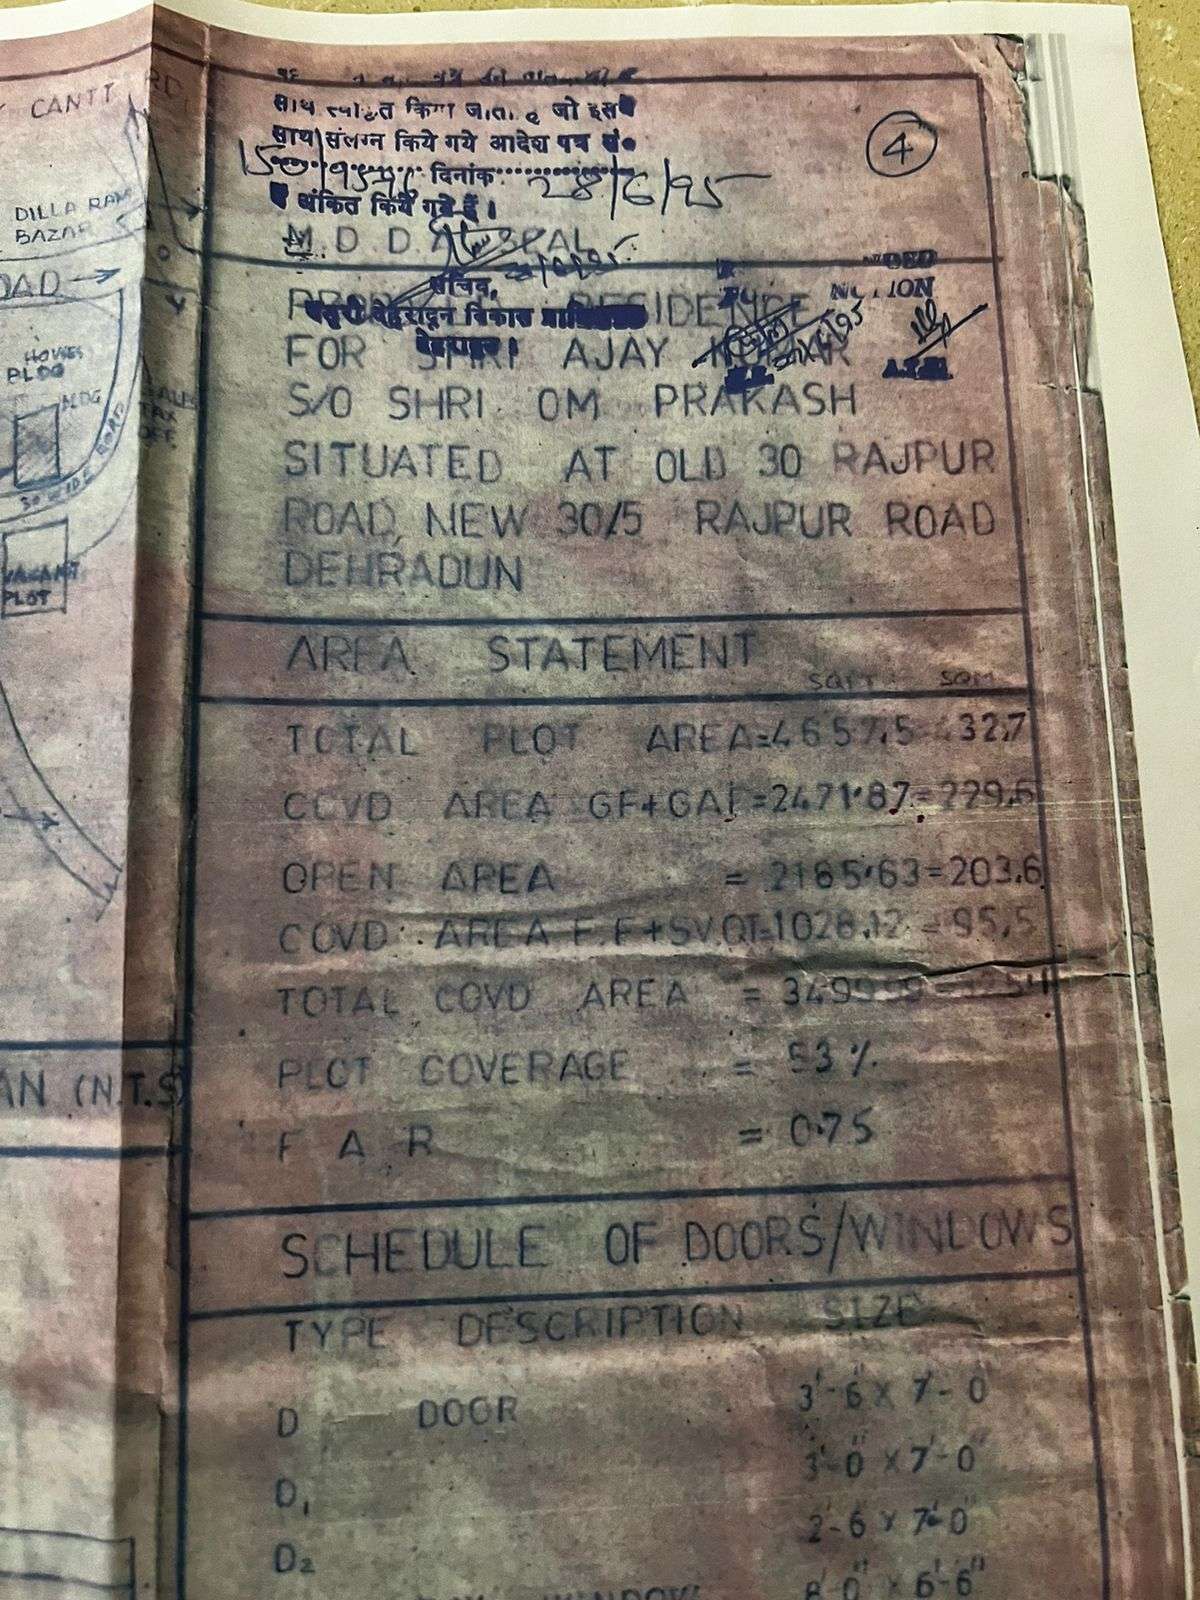 CANTT RD
DILLA RAM
BAZAR
ROAD
HOWES
BLDG
BLDG
SALES
TAX
OFF.
30' WIDE ROAD
VACANT
PLOT
PLAN (N.T.S)
साथ किया जाता है जो इसके
साथ संलग्न किये गये आदेश पत्र सं०
दिनांक 28/6/95
अंकित किये गये हैं।
4
M.D.D.A.
सचिव,
देहरादून विकास
RESIDENCE
FOR SHRI AJAY KUMAR
S/O SHRI OM PRAKASH
SITUATED AT OLD 30 RAJPUR
ROAD, NEW 30/5 RAJPUR ROAD
DEHRADUN
AREA STATEMENT
SQFT SQM
TOTAL PLOT AREA=4657.5=432.7
COVD AREA GF+GAR=2471.87=229.6
OPEN AREA = 2185.63=203.6
COVD AREA F.F+SV.QT=1028.12 = 95.5
TOTAL COVD AREA = 3499.99
PLOT COVERAGE = 53%
F A R = 0.75
SCHEDULE OF DOORS/WINDOWS
TYPE DESCRIPTION SIZE
D DOOR 3'-6" X 7'-0"
D1 3'-0" X 7'-0"
D2 2'-6" X 7'-0"
WINDOW 8'-0" X 6'-6"